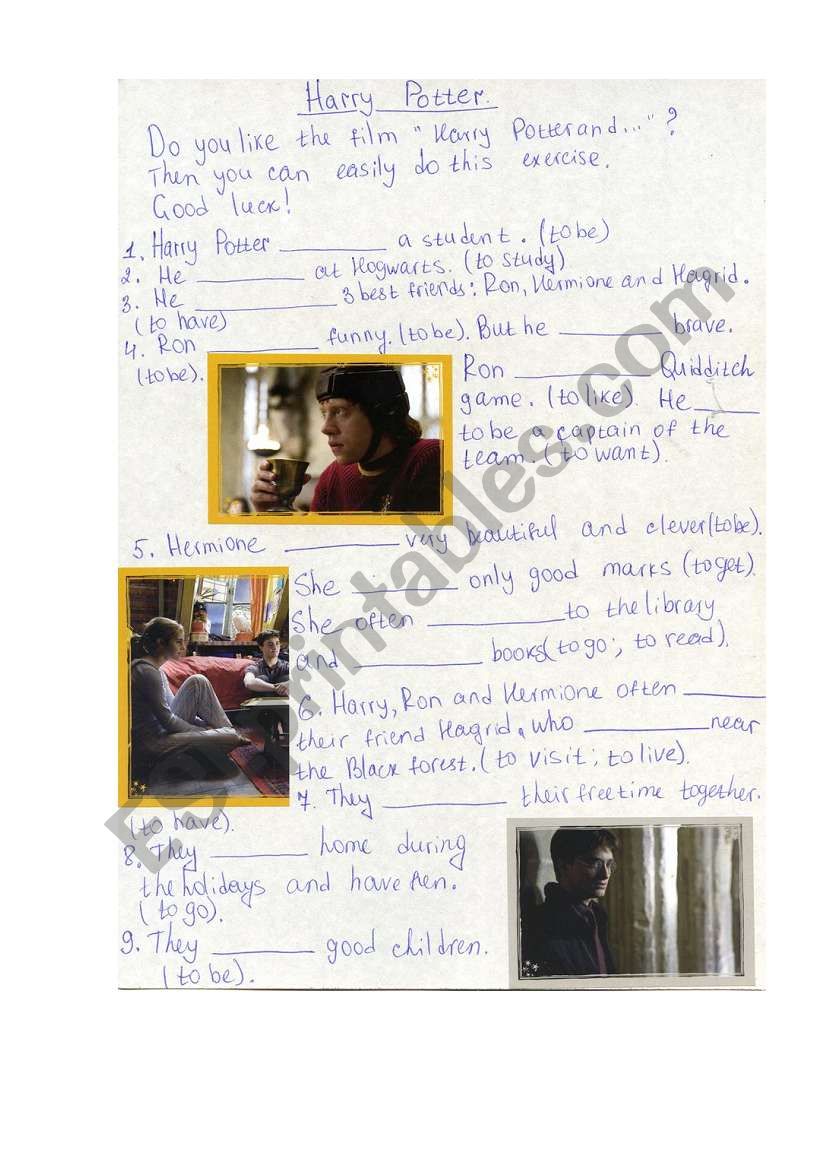 Harry Potter.
Do you like the film "Harry Potter and..." ?
Then you can easily do this exercise.
Good luck!
1. Harry Potter ________ a student. (to be)
2. He ________ at Hogwarts. (to study)
3. He ________ 3 best friends: Ron, Hermione and Hagrid.
(to have)
4. Ron ________ funny. (to be). But he ________ brave.
(to be).
Ron ________ Quidditch
game. (to like). He ____
to be a captain of the
team. (to want).
5. Hermione ________ very beautiful and clever (to be).
She ________ only good marks (to get).
She often ________ to the library
and ________ books (to go; to read).
6. Harry, Ron and Hermione often ________
their friend Hagrid, who ________ near
the Black forest. (to visit; to live).
7. They ________ their free time together.
(to have).
8. They ________ home during
the holidays and have fien.
(to go).
9. They ________ good children.
(to be).
ESLprintables.com